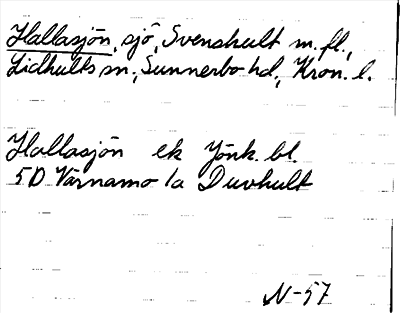 Hallasjön, sjö, Svenshult m.fl.,
Lidhults sn., Sunnerbo hd, Kron. l.
Hallasjön ek Jönk. bl.
5D Värnamo 1a Duvhult
N-57